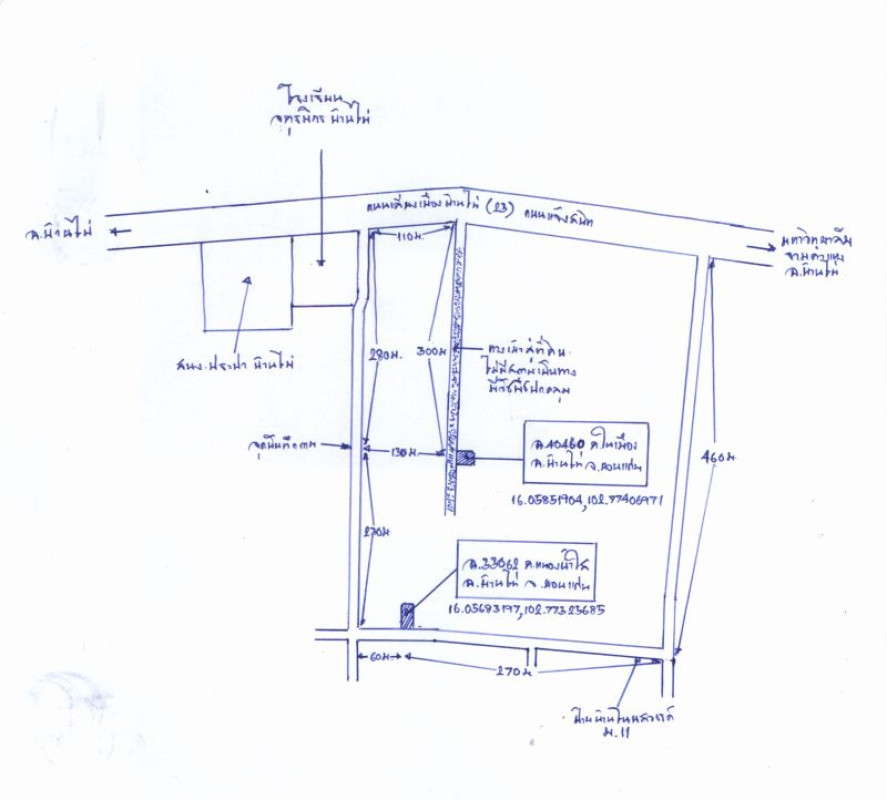 โรงเรียน
จตุรมิตร บ้านไผ่
ถนนเลี่ยงเมืองบ้านไผ่ (23) ถนนแจ้งสนิท
อ.บ้านไผ่
มหาวิทยาลัย
รามคำแหง
อ.บ้านไผ่
110 ม.
สนง.ประปา บ้านไผ่
280 ม.
300 ม.
ทางเข้าสู่ที่ดิน
ไม่มีสภาพเป็นทาง
มีวัชพืชปกคลุม
130 ม.
460 ม.
ฉ.40460 ต.ในเมือง
อ.บ้านไผ่ จ.ขอนแก่น
16.05851904,102.77406971
270 ม
ฉ.33062 ต.หนองน้ำใส
อ.บ้านไผ่ จ.ขอนแก่น
16.05683197,102.77323685
60 ม.
270 ม
ม.11